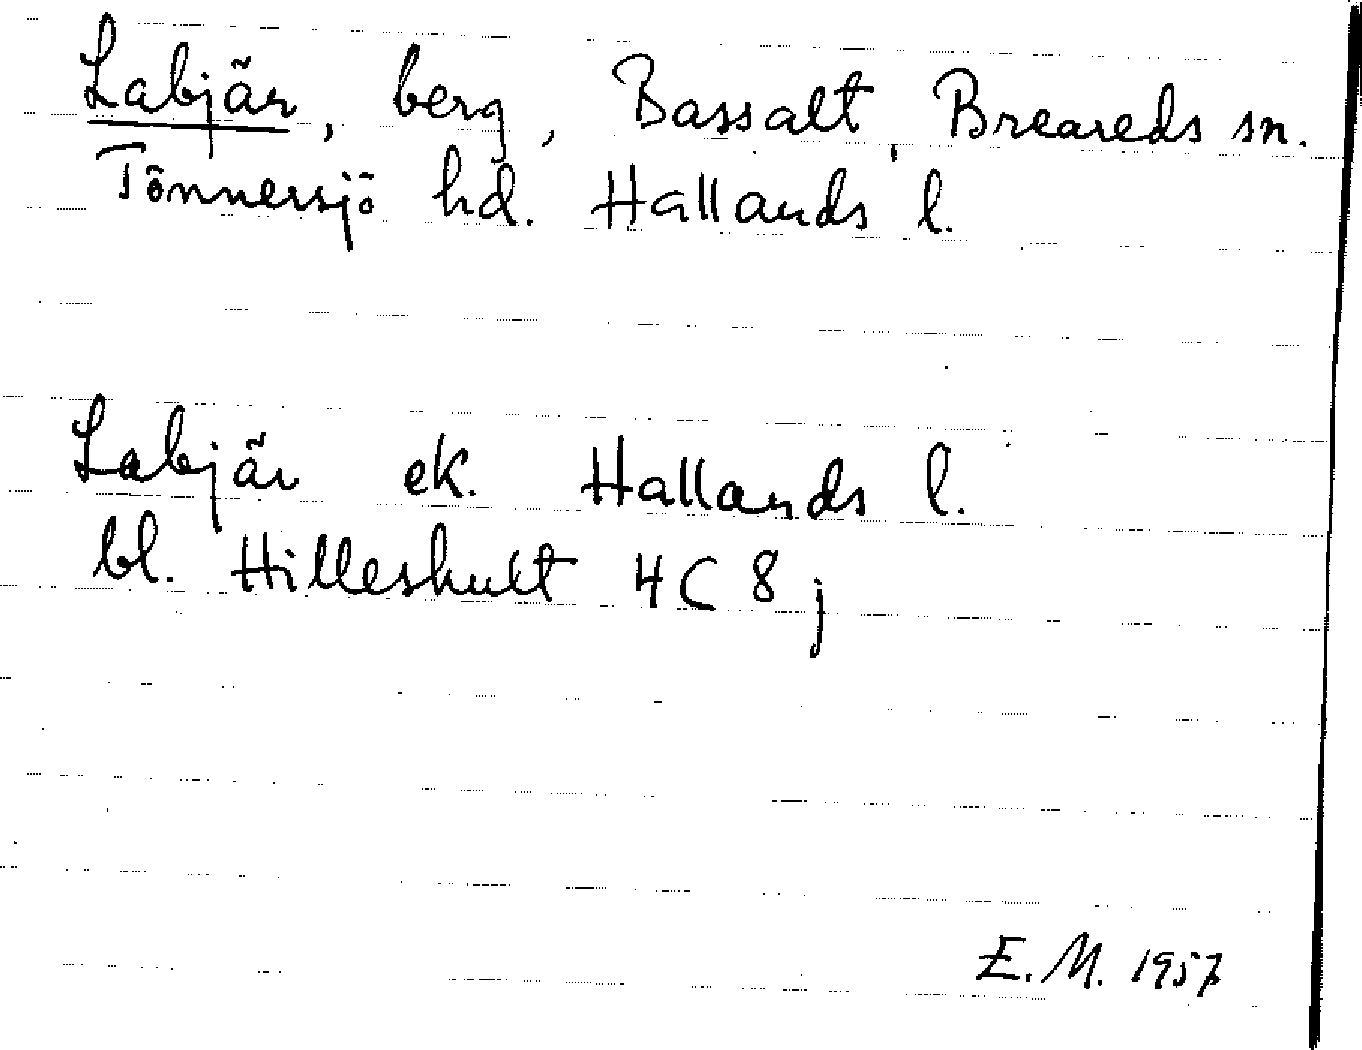 Labjär, berg, Bassalt, Breareds sn.
Tönnersjö hd. Hallands l.
Labjär ek. Hallands l.
bl. Hilleshult 4C 8j
E.M. 1957